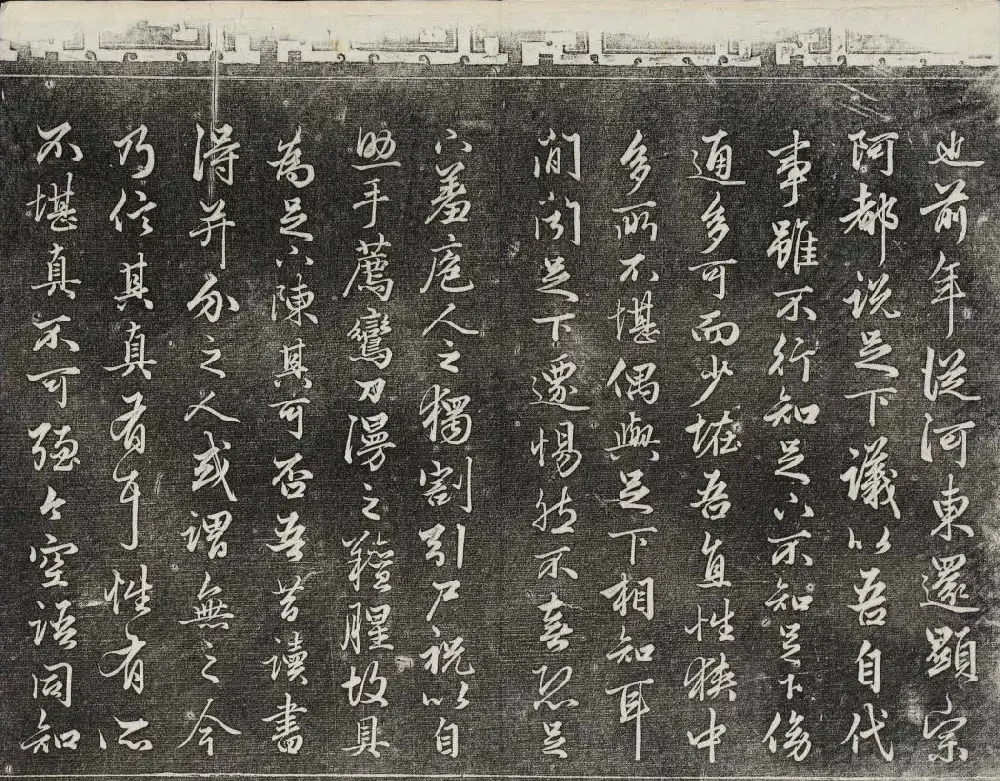 也前年從河東還顯宗
阿都說足下議以吾自代
事雖不行知足下不知足下傍
通多可而少恠吾直性狹中
多所不堪偶與足下相知耳
間聞足下遷惕然不喜恐足
下羞庖人之獨割引尸祝以自
助手薦鸞刀漫之羶腥故具
為足下陳其可否吾昔讀書
得并介之人或謂無之今
乃信其真有耳性有所
不堪真不可強今空語同知